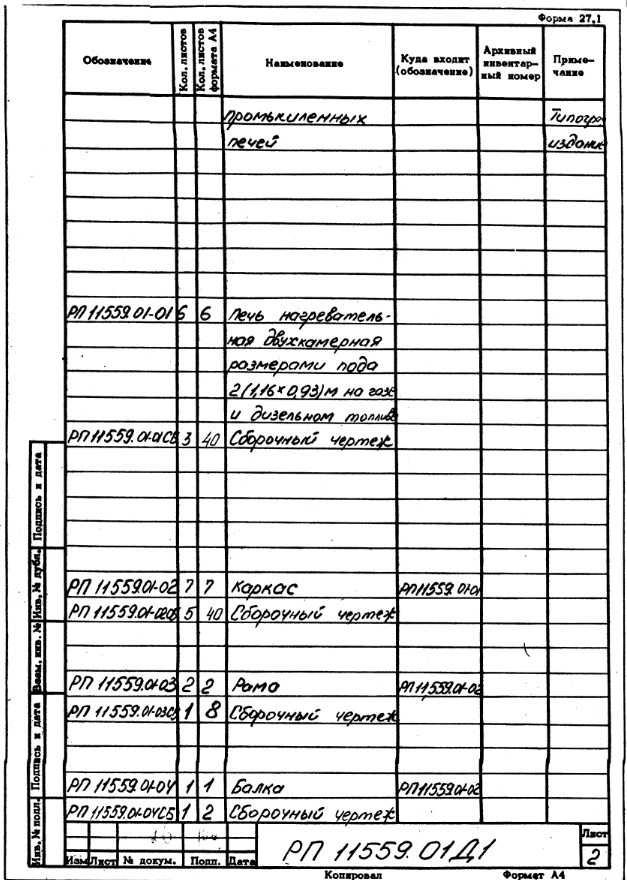 Форма 27.1
Обозначение Кол. листов Кол. листов формата А4 Наименование Куда входит (обозначение) Архивный инвентар-ный номер Приме-чание
промышленных Типогр
печей издание
РП 11559.01-01 6 6 Печь нагреватель-
ная двухкамерная
размерами пода
2(1,16×0,93)м на газе
и дизельном топливе
РП 11559.01-01СБ 3 40 Сборочный чертеж
РП 11559.01-02 7 7 Каркас РП11559.01-01
РП 11559.01-02СБ 5 40 Сборочный чертеж
РП 11559.01-03 2 2 Рама РП 11559.01-02
РП 11559.01-03СБ 1 8 Сборочный чертеж
РП 11559.01-04 1 1 Балка РП11559.01-02
РП 11559.01-04СБ 1 2 Сборочный чертеж
Инв. № подл. Подпись и дата Взам. инв. № Инв. № дубл. Подпись и дата
Изм Лист № докум. Подп. Дата
РП 11559.01Д1
Лист
2
Копировал Формат А4